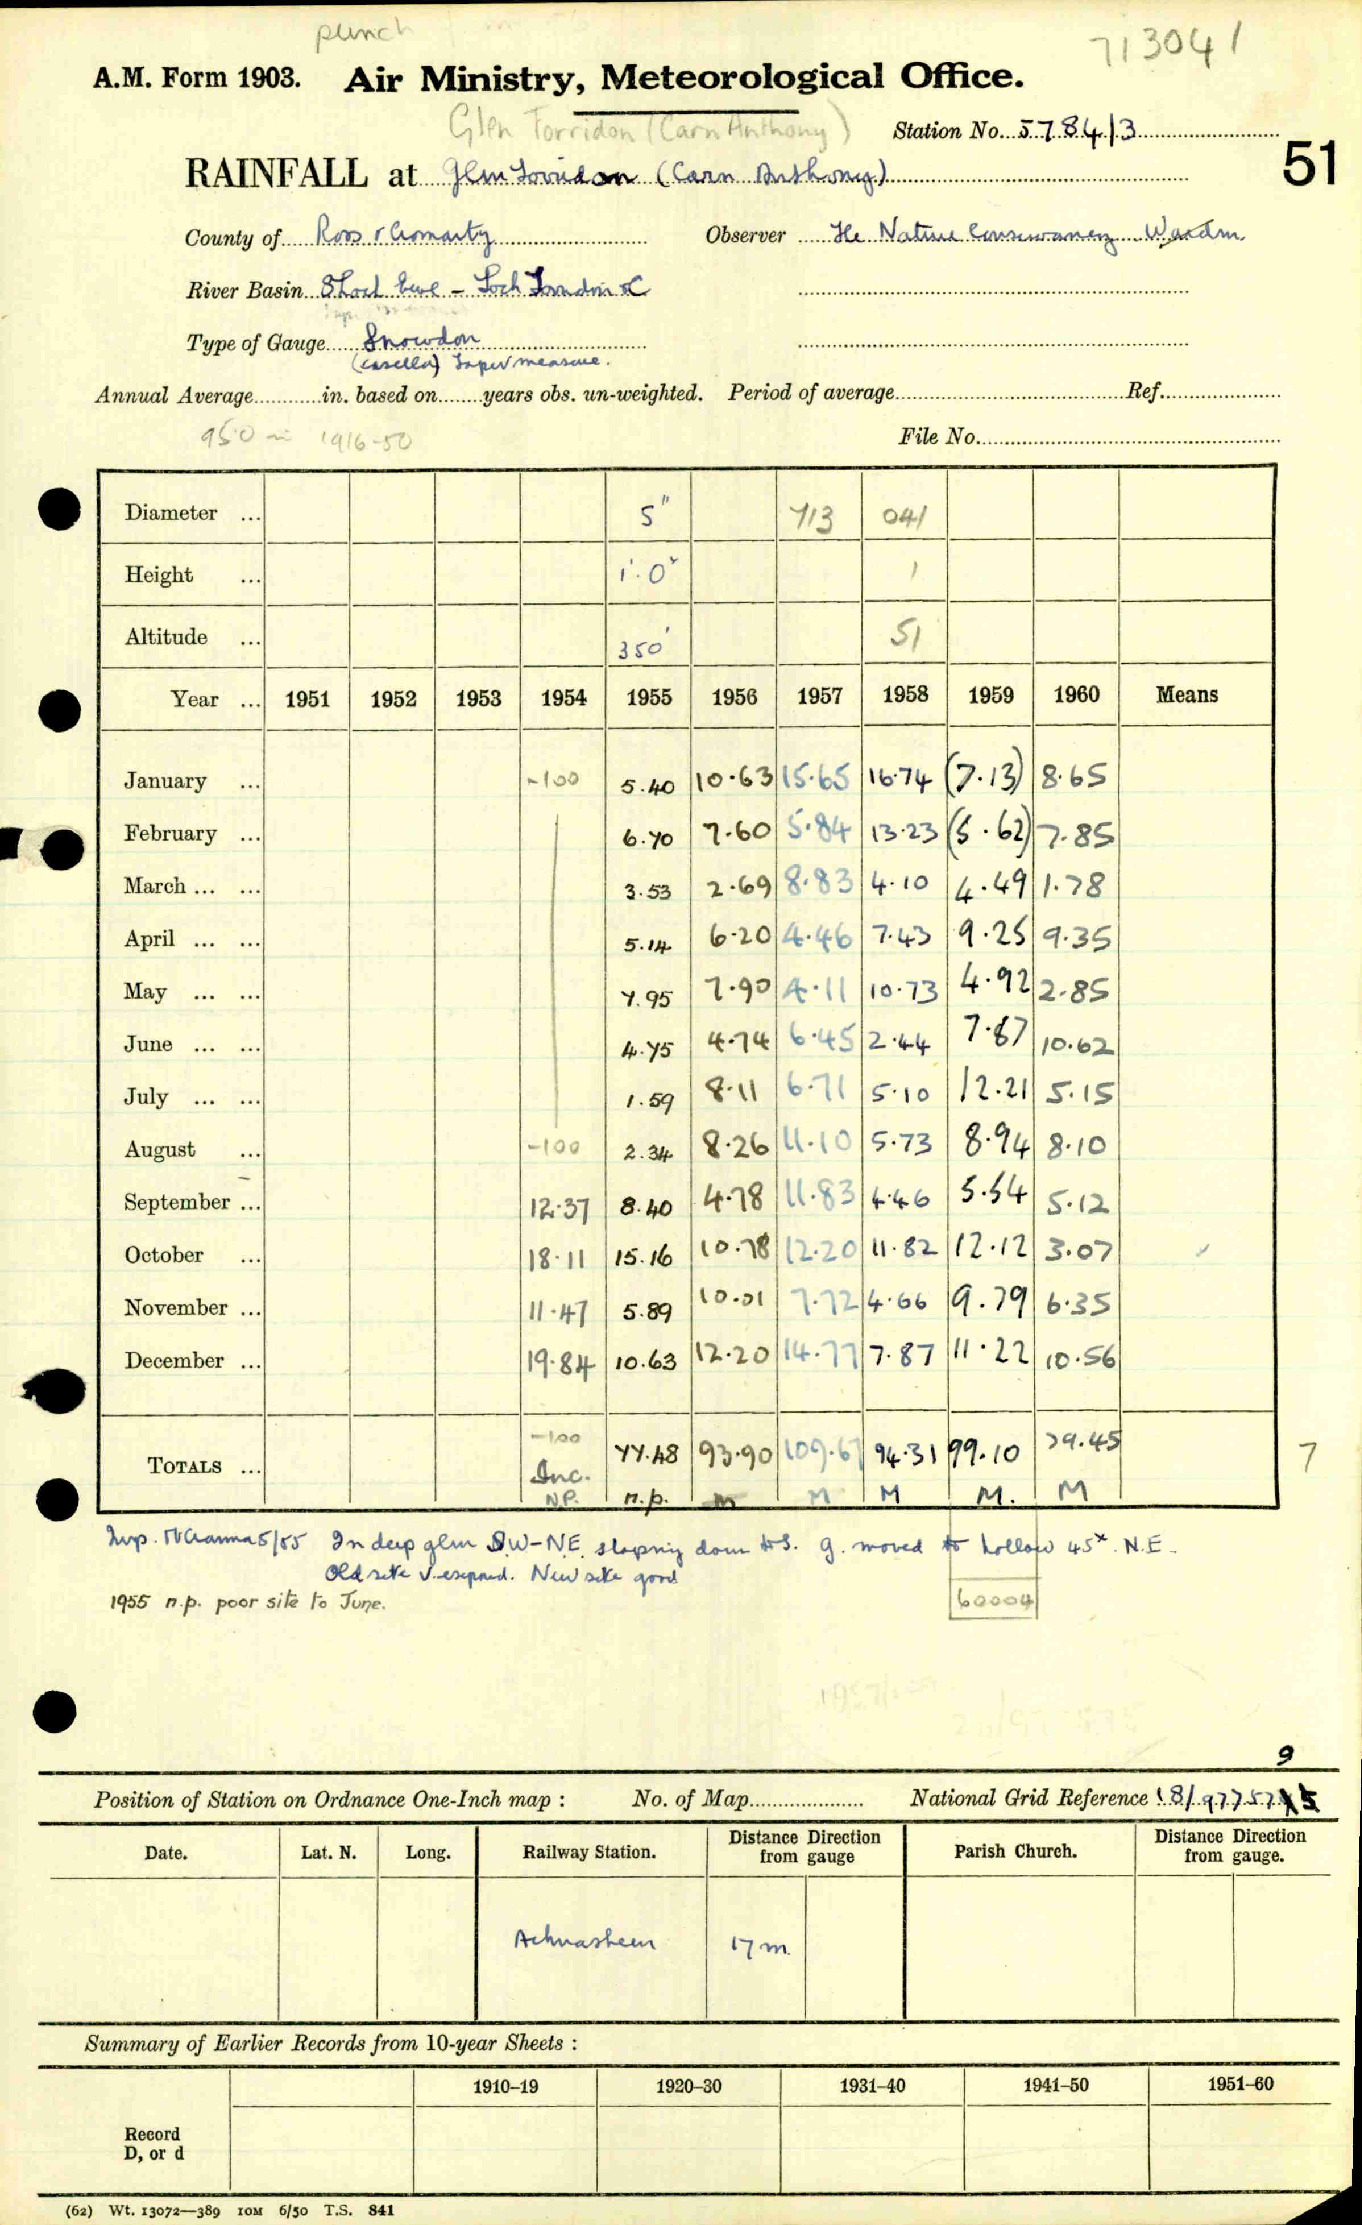 punch
713041
A.M. Form 1903. Air Ministry, Meteorological Office.
Glen Torridon (Carn Anthony)
Station No. 5784/3
51
RAINFALL at Glen Torridon (Carn Anthony)
County of Ross & Cromarty Observer The Nature Conservancy Warden
River Basin Loch Ewe - Loch Torridon
Type of Gauge Snowdon
(Casella) Taper measure.
Annual Average in. based on years obs. un-weighted. Period of average Ref.
950 1916-50
File No.
Diameter ... 5" 713 041
Height ... 1'.0" 1
Altitude ... 350' 51
Year ... 1951 1952 1953 1954 1955 1956 1957 1958 1959 1960 Means
January ... -100 5.40 10.63 15.65 16.74 (7.13) 8.65
February ... 6.70 7.60 5.84 13.23 (5.62) 7.85
March ... ... 3.53 2.69 8.83 4.10 4.49 1.78
April ... ... 5.14 6.20 4.46 7.43 9.25 9.35
May ... ... 7.95 7.90 4.11 10.73 4.92 2.85
June ... ... 4.75 4.74 6.45 2.44 7.87 10.62
July ... ... 1.59 8.11 6.71 5.10 12.21 5.15
August ... -100 2.34 8.26 11.10 5.73 8.94 8.10
September ... 12.37 8.40 4.78 11.83 4.46 5.54 5.12
October ... 18.11 15.16 10.78 12.20 11.82 12.12 3.07
November ... 11.47 5.89 10.01 7.72 4.66 9.79 6.35
December ... 19.84 10.63 12.20 14.77 7.87 11.22 10.56
-100
TOTALS ... Inc. 77.48 93.90 109.67 94.31 99.10 79.45 7
N.P. n.p. m M M M. M
5/55 In deep glen SW-NE. sloping down to S. g. moved to hollow 45x N.E.
Old site v. exposed. New site good
1955 n.p. poor site to June.
60004
9
Position of Station on Ordnance One-Inch map : No. of Map National Grid Reference 18/
Date. Lat. N. Long. Railway Station. Distance Direction from gauge Parish Church. Distance Direction from gauge.
Achnasheen 17 m.
Summary of Earlier Records from 10-year Sheets :
1910–19 1920–30 1931–40 1941–50 1951–60
Record
D, or d
(62) Wt. 13072—389 10M 6/50 T.S. 841